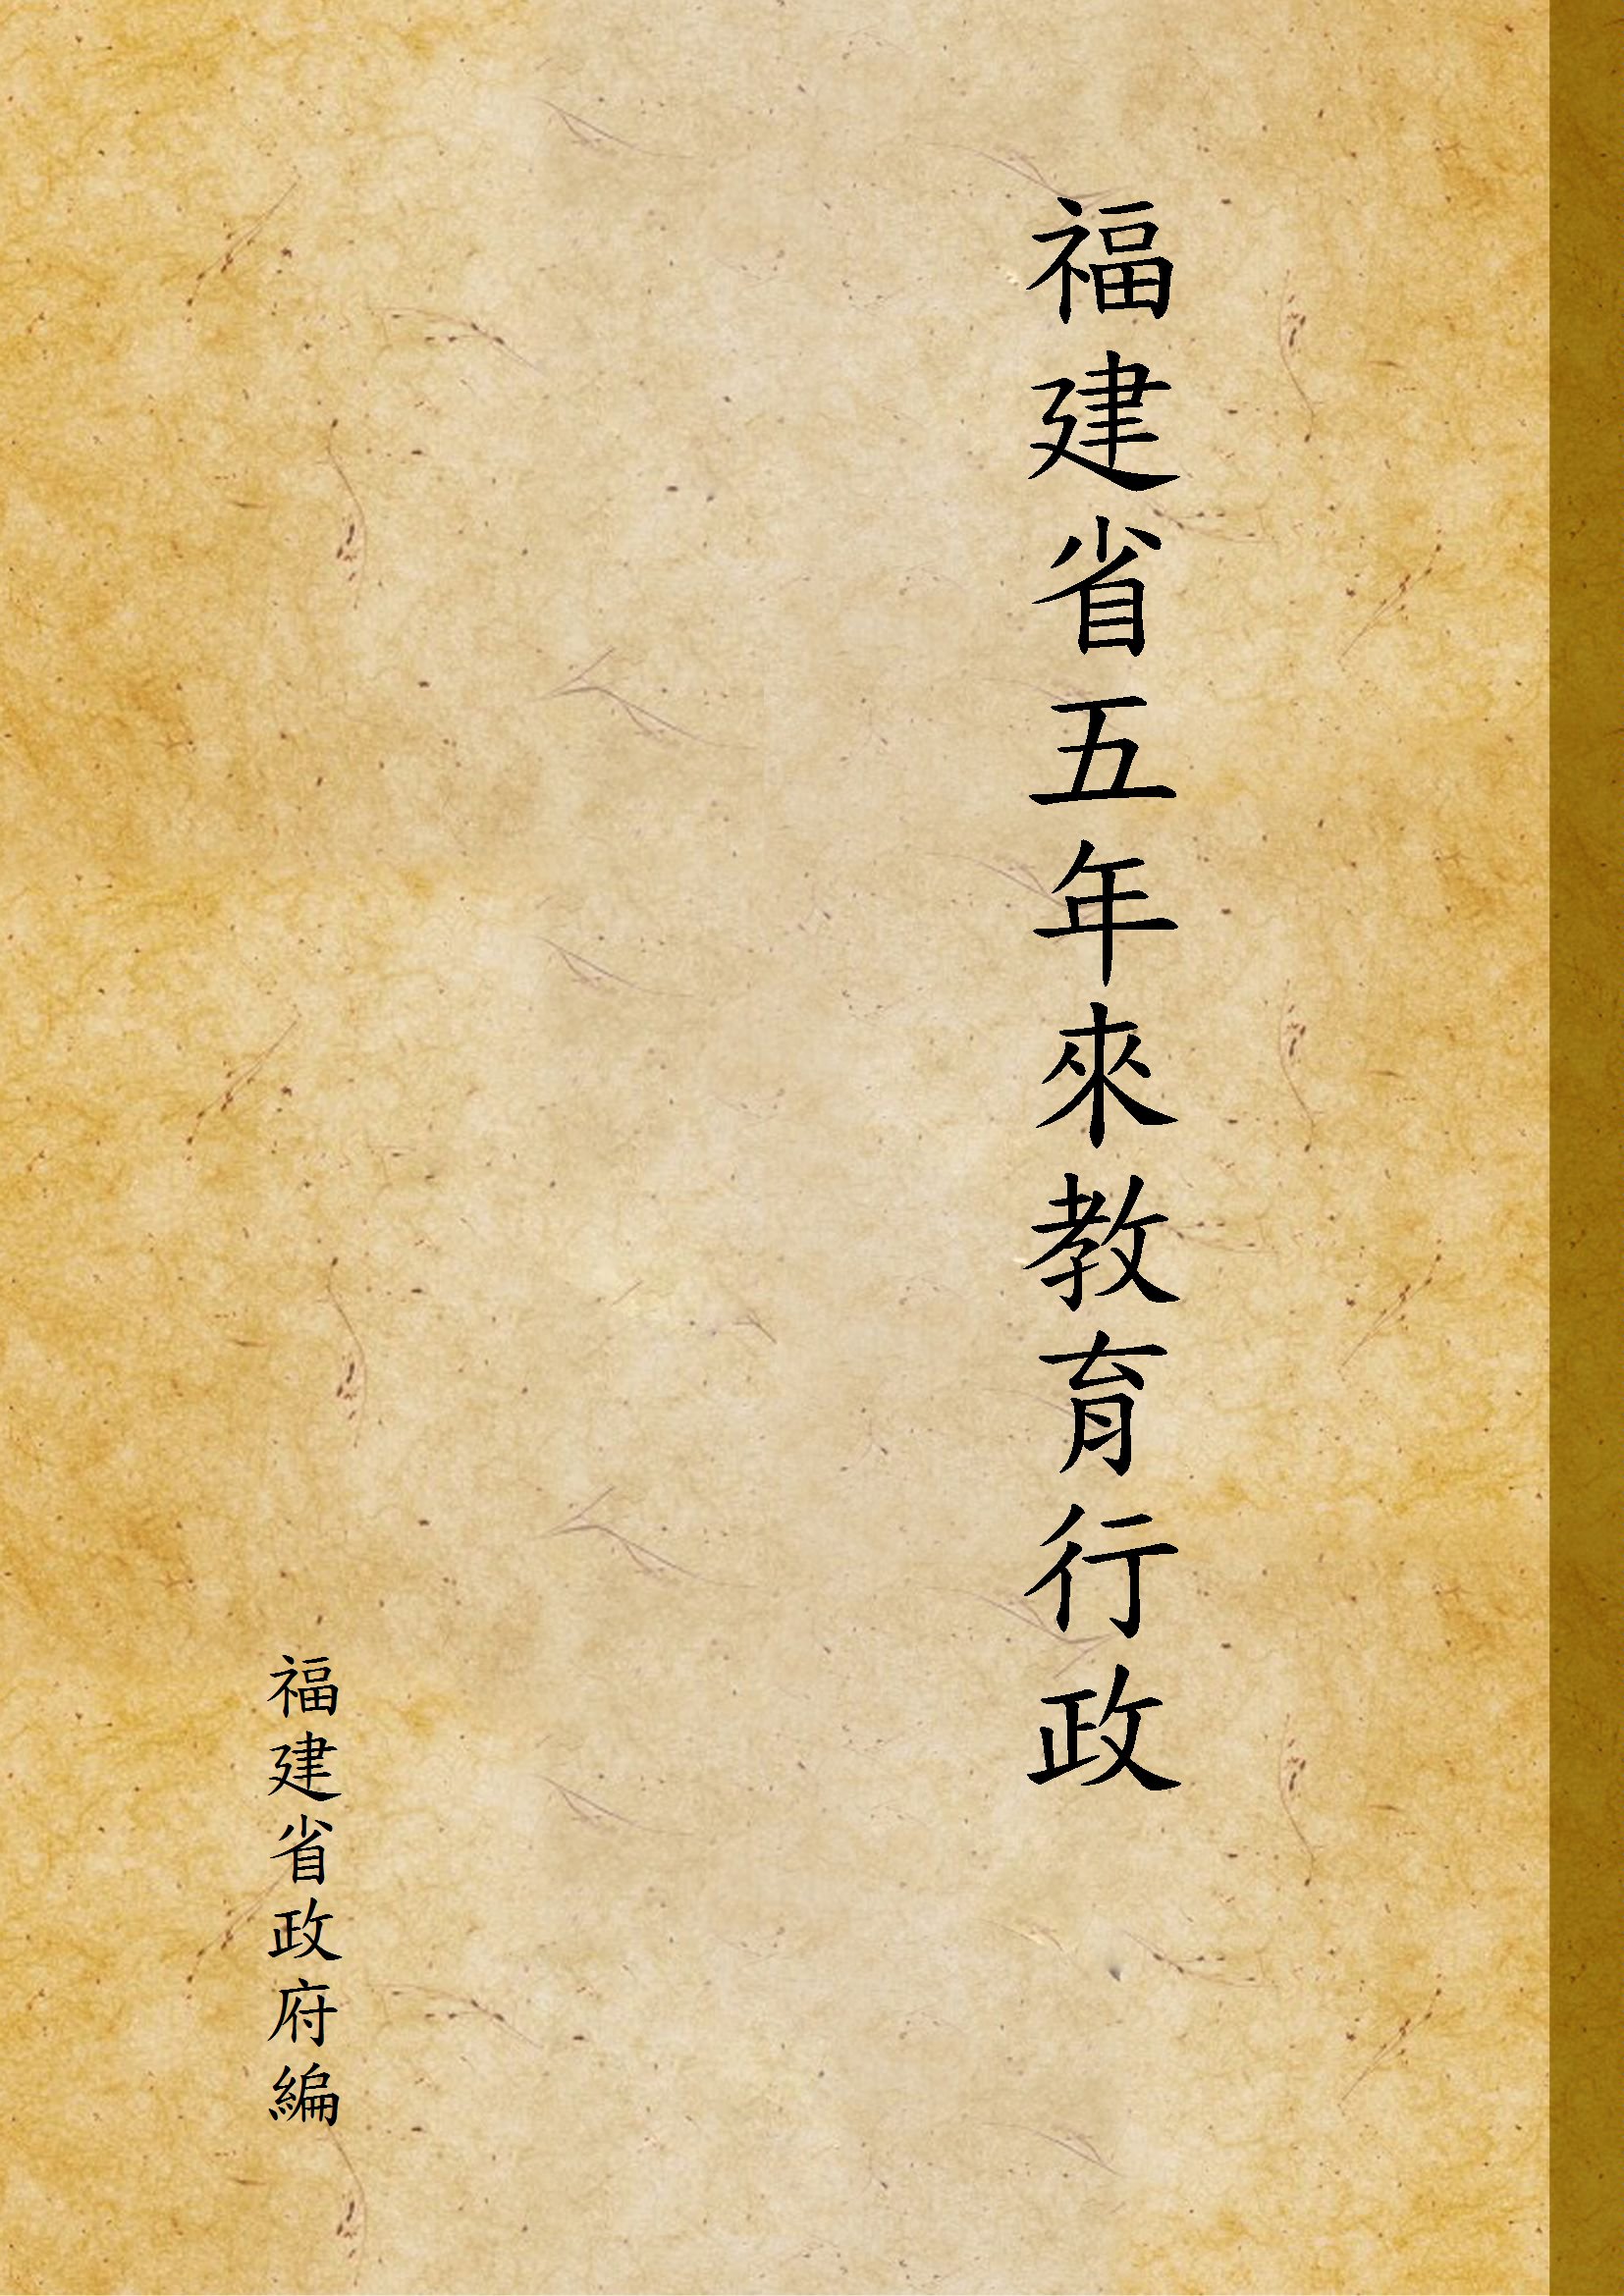 福建省五年來教育行政
福建省政府編